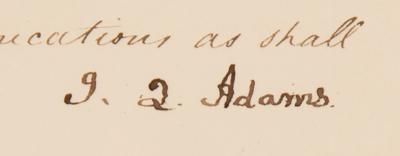 ications as shall
J. Q. Adams.